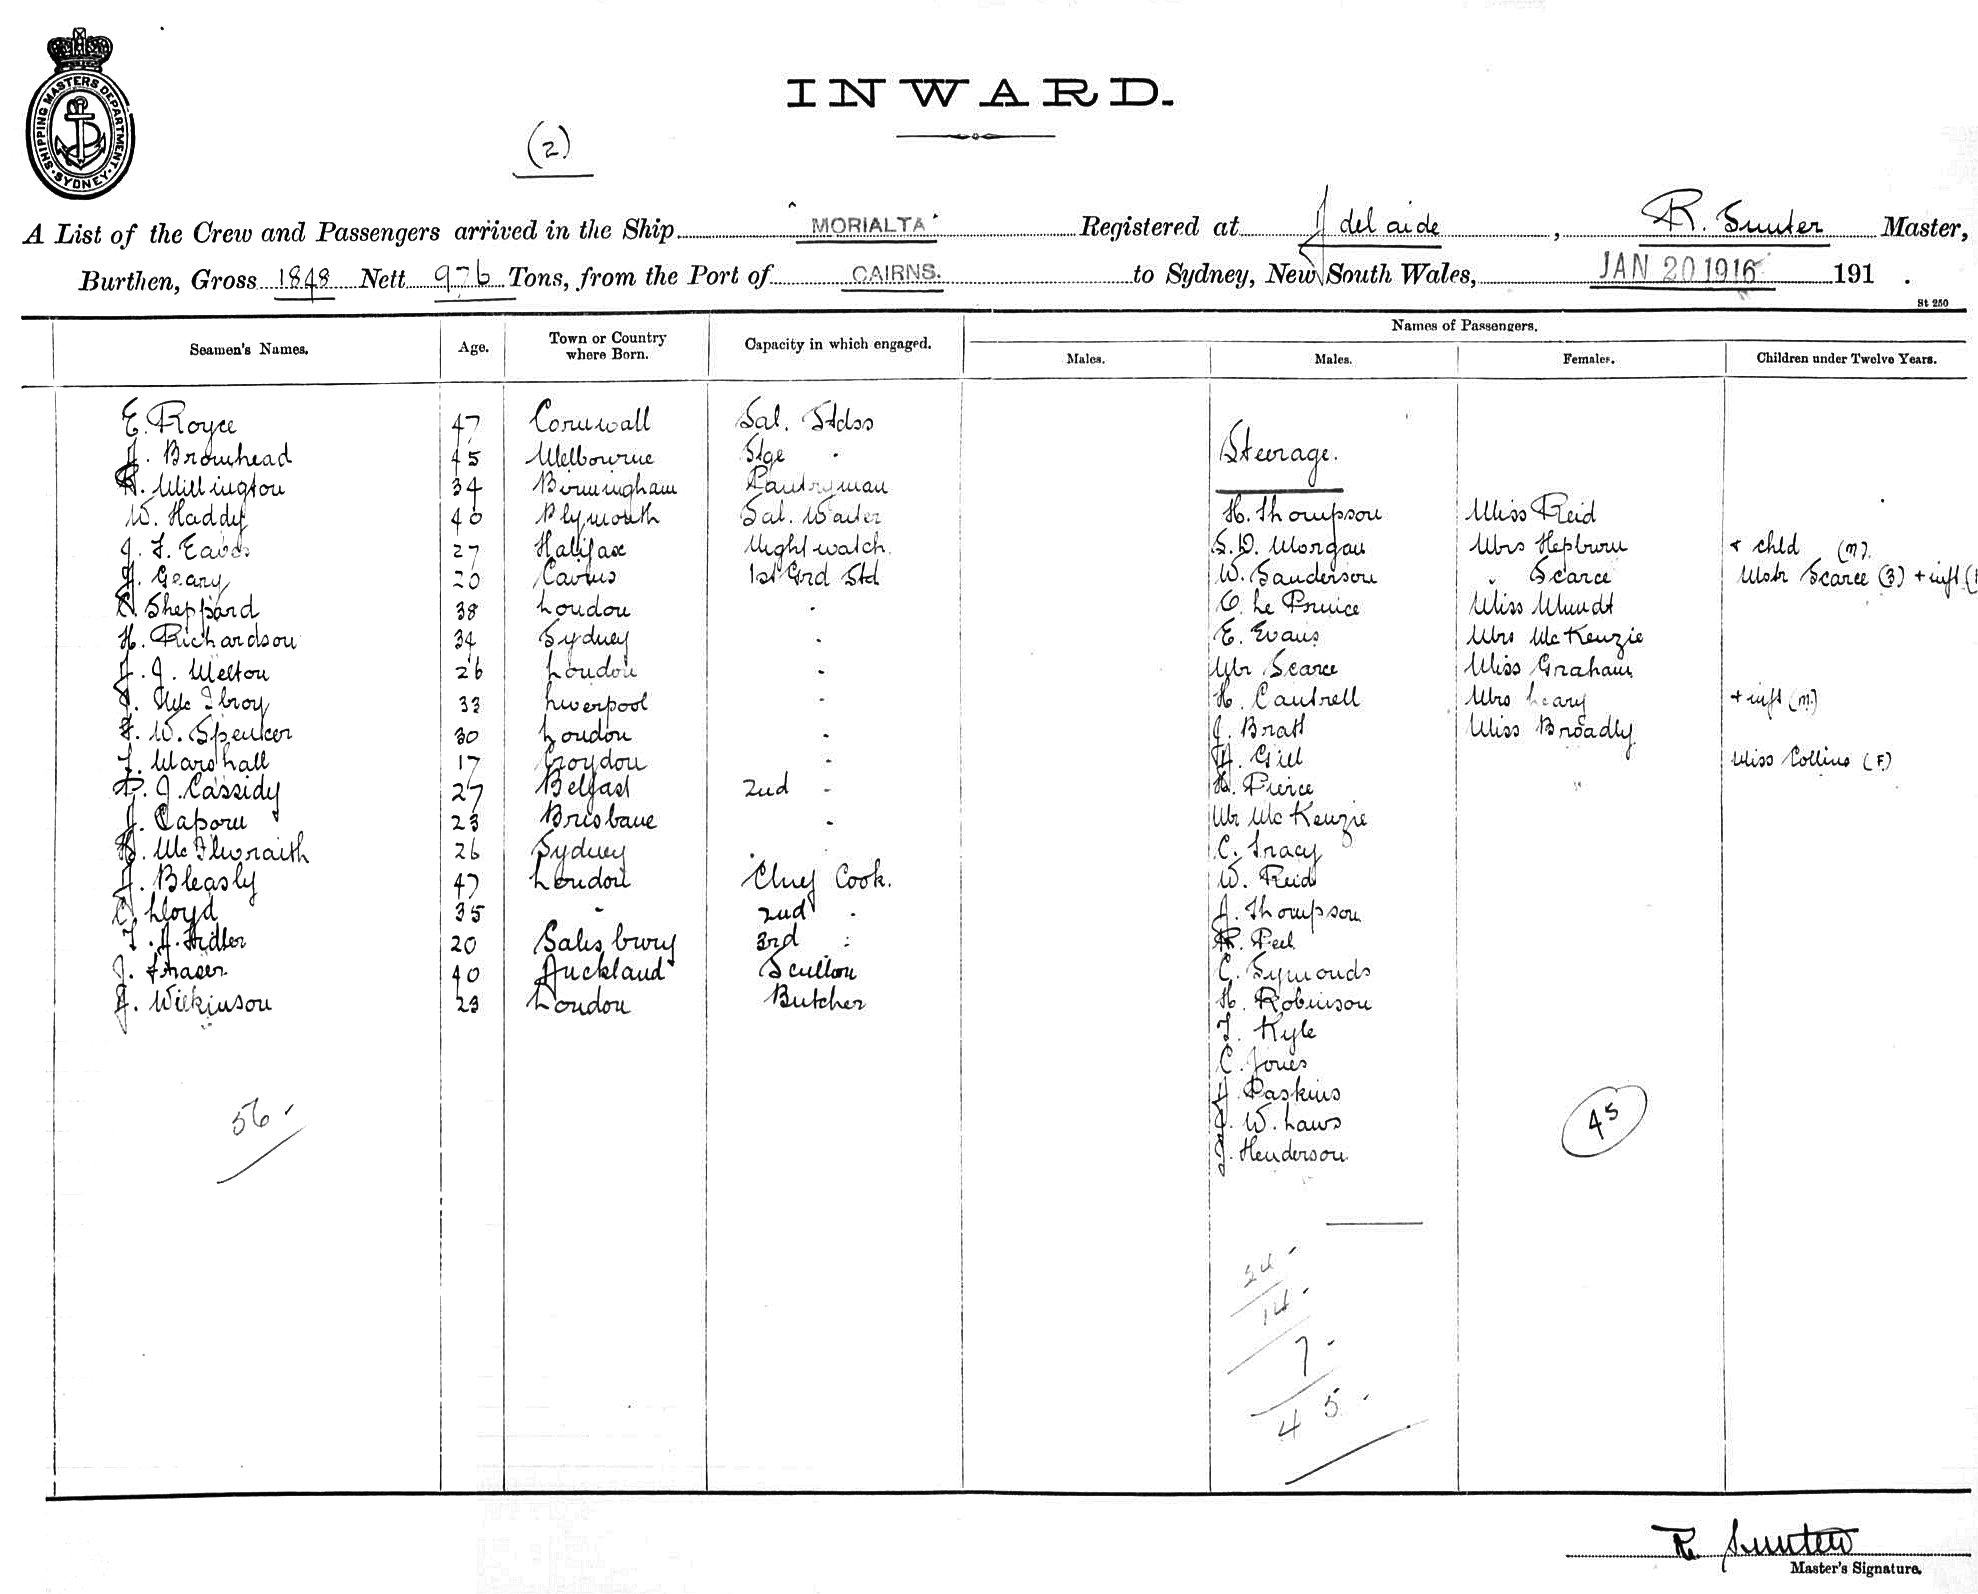 SHIPPING MASTERS DEPARTMENT · SYDNEY ·
INWARD.
(2)
A List of the Crew and Passengers arrived in the Ship "MORIALTA" Registered at Adelaide, R. Sunter Master,
Burthen, Gross 1848 Nett 976 Tons, from the Port of CAIRNS. to Sydney, New South Wales, JAN 20 1916 191 .
St 250
Seamen's Names. Age. Town or Country where Born. Capacity in which engaged. Names of Passengers.
Males. Males. Females. Children under Twelve Years.
E. Royce 47 Cornwall Sal. Stdss
J. Bromhead 45 Melbourne Stge "
R. Willington 34 Birmingham Pantryman
W. Haddy 40 Plymouth Sal. Waiter
J. F. Eaves 27 Halifax Nightwatch
J. Geary 20 Cairns 1st Grd Std
C. Sheppard 38 London "
H. Richardson 34 Sydney "
J. J. Melton 26 London "
J. McIlroy 33 Liverpool "
F. W. Spenker 30 London "
F. Marshall 17 Croydon "
P. J. Cassidy 27 Belfast 2nd "
J. Caporn 23 Brisbane "
H. McIlwraith 26 Sydney " "
J. Bleasly 47 London Chief Cook.
C. Lloyd 35 " 2nd "
T. A. Hidler 20 Salisbury 3rd "
J. Fraser 40 Auckland Scullion
J. Wilkinson 23 London Butcher
56
Steerage.
H. Thompson Miss Reid
S. D. Morgan Mrs Hepburn + chld (M).
W. Sanderson " Scarce Mstr Scarce (3) + inft (
C. Le Prince Miss Mundt
E. Evans Mrs McKenzie
Mr Scarce Miss Graham
H. Cantrell Mrs Leary + inft (M.)
J. Bratt Miss Broadly
A. Gill Miss Collins (F)
H. Pierce
Mr McKenzie
C. Tracy
W. Reid
J. Thompson
R. Peel
C. Symonds
H. Robinson
T. Kyle
C. Jones
A. Paskins
J. W. Laws
J. Henderson
45
24
14
7
45
R. Sunter
Master's Signature.